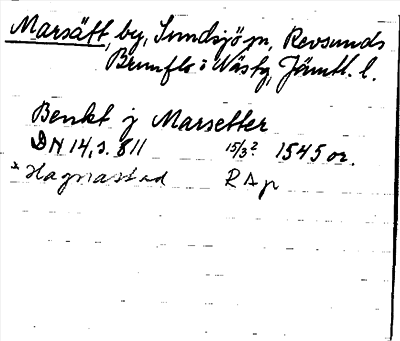 Marsätt, by, Sundsjö sn, Revsunds
Brunflo o Näs tg, Jämtl. l.
Benkt j Marsetter
DN 14, s. 811 15/3 2 1545 or.
* Hagnastad RAp